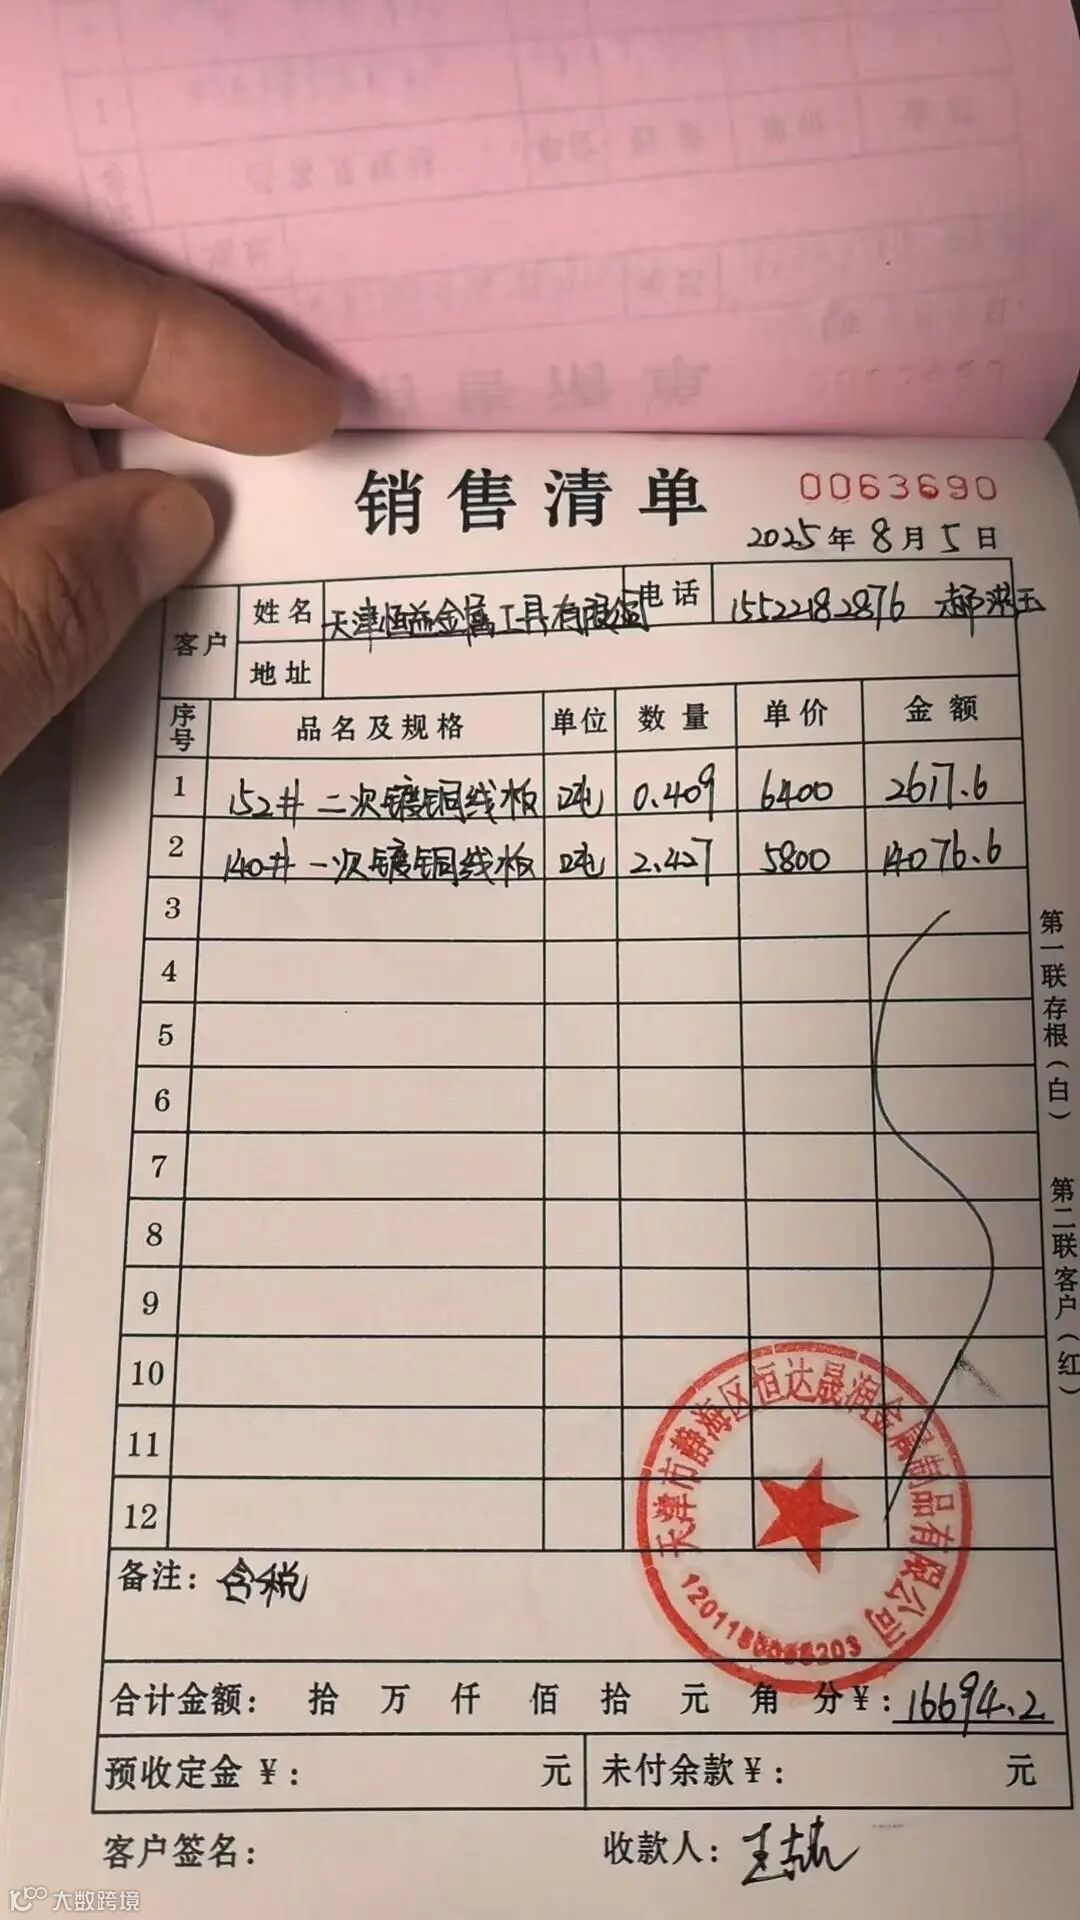 销售清单 0063690
2025年8月5日
客户 姓名 天津恒益金属工具有限公司 电话 15522182876 郝洪玉
地址
序号 品名及规格 单位 数量 单价 金额
1 152# 二次镀铜线板 吨 0.409 6400 2617.6
2 140# 一次镀铜线板 吨 2.427 5800 14076.6
3
4
5
6
7
8
9
10
11
12
第一联存根(白) 第二联客户(红)
天津市静海区恒达晟润金属制品有限公司
备注: 含税
合计金额: 拾 万 仟 佰 拾 元 角 分¥: 16694.2
预收定金¥: 元 未付余款¥: 元
客户签名: 收款人: 王
大数跨境